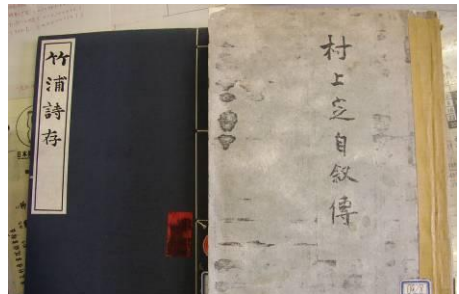 竹浦詩存
村上定自叙傳